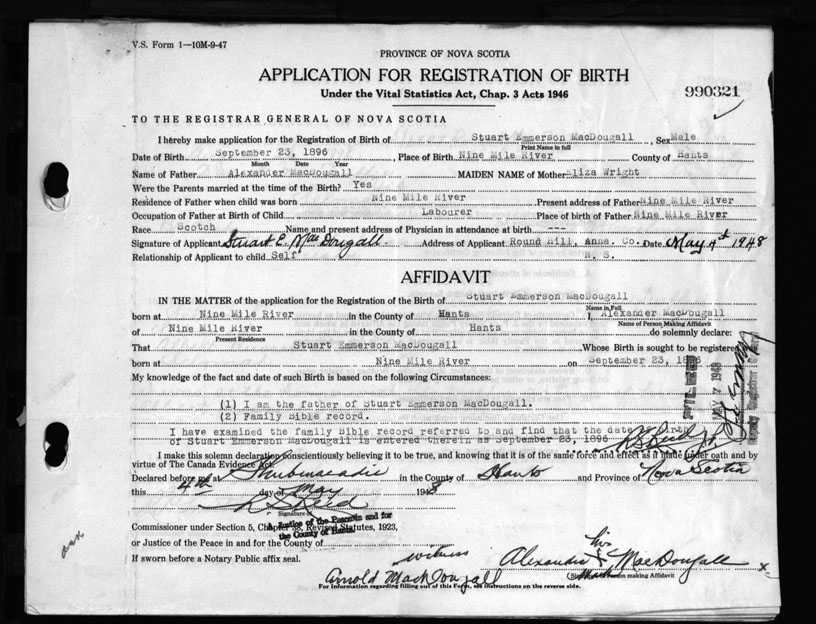 V.S. Form 1—10M-9-47
PROVINCE OF NOVA SCOTIA
APPLICATION FOR REGISTRATION OF BIRTH
Under the Vital Statistics Act, Chap. 3 Acts 1946
990321
TO THE REGISTRAR GENERAL OF NOVA SCOTIA
I hereby make application for the Registration of Birth of Stuart Emmerson MacDougall, Sex Male
Print Name in full
Date of Birth September 23, 1896, Place of Birth Nine Mile River County of Hants
Month Date Year
Name of Father Alexander MacDougall MAIDEN NAME of Mother Eliza Wright
Were the Parents married at the time of the Birth? Yes
Residence of Father when child was born Nine Mile River Present address of Father Nine Mile River
Occupation of Father at Birth of Child Labourer Place of birth of Father Nine Mile River
Race Scotch Name and present address of Physician in attendance at birth ---
Signature of Applicant Stuart E. MacDougall. Address of Applicant Round Hill, Anna. Co. Date May 4th 1948
Relationship of Applicant to child Self N. S.
AFFIDAVIT
IN THE MATTER of the application for the Registration of the Birth of Stuart Emmerson MacDougall
Name in Full
born at Nine Mile River in the County of Hants I, Alexander MacDougall
Name of Person Making Affidavit
of Nine Mile River in the County of Hants do solemnly declare:
Present Residence
That Stuart Emmerson MacDougall Whose Birth is sought to be registered was
born at Nine Mile River on September 23, 1896
My knowledge of the fact and date of such Birth is based on the following Circumstances:
(1) I am the father of Stuart Emmerson MacDougall.
(2) Family Bible record.
I have examined the family Bible record referred to and find that the date of birth
of Stuart Emmerson MacDougall is entered therein as September 23, 1896
FILED
MAY 7 1948
I make this solemn declaration conscientiously believing it to be true, and knowing that it is of the same force and effect as if made under oath and by
virtue of The Canada Evidence Act.
Declared before me at Shubenacadie in the County of Hants and Province of Nova Scotia
this 4th day of May 1948
Signature of
a Justice of the Peace in and for
the County of Hants
Commissioner under Section 5, Chapter 38, Revised Statutes, 1923,
or Justice of the Peace in and for the County of
If sworn before a Notary Public affix seal.
witness
Arnold MacDougall
Alexander his X mark MacDougall x
Signature of Person making Affidavit
For Information regarding filling out of this Form, see instructions on the reverse side.